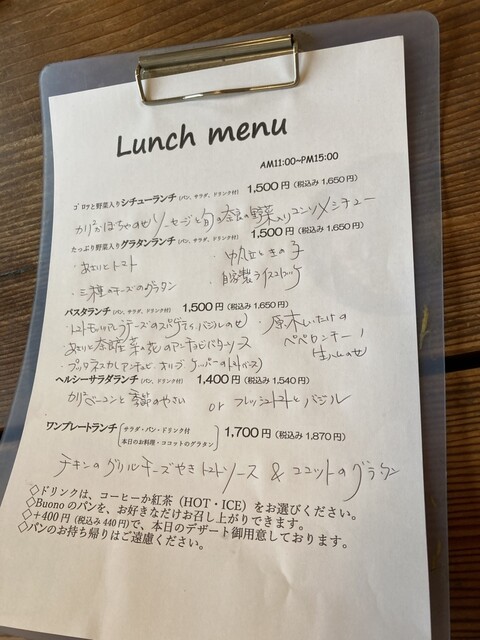 Lunch menu
AM11:00~PM15:00
ゴロッと野菜入りシチューランチ (パン、サラダ、ドリンク付) 1,500円 (税込み 1,650円)
カリカリかぼちゃのせソーセージと旬の奈良の野菜入りコンソメシチュー
たっぷり野菜入りグラタンランチ (パン、サラダ、ドリンク付) 1,500円 (税込み 1,650円)
・あさりとトマト
・三種のチーズのグラタン
・ときの子
・自家製ライスコロッケ
パスタランチ (パン、サラダ、ドリンク付) 1,500円 (税込み 1,650円)
・トマトモッツァレラチーズのスパゲティバジルのせ
・あさりと奈良産菜の花のアンチョビバターソース
・プッタネスカ(アンチョビ オリーブ ケッパーのトマトソース)
・原木しいたけの
ペペロンチーノ
生ハムのせ
ヘルシーサラダランチ (パン、ドリンク付) 1,400円 (税込み 1,540円)
カリカリベーコンと季節のやさい or フレッシュトマトとバジル
ワンプレートランチ (サラダ・パン・ドリンク付 本日のお料理・ココットのグラタン) 1,700円 (税込み 1,870円)
チキンのグリルチーズやきトマトソース & ココットのグラタン
◇ドリンクは、コーヒーか紅茶(HOT・ICE)をお選びください。
◇Buonoのパンを、お好きなだけお召し上がりできます。
◇+400円(税込み440円)で、本日のデザート御用意しております。
◇パンのお持ち帰りはご遠慮ください。